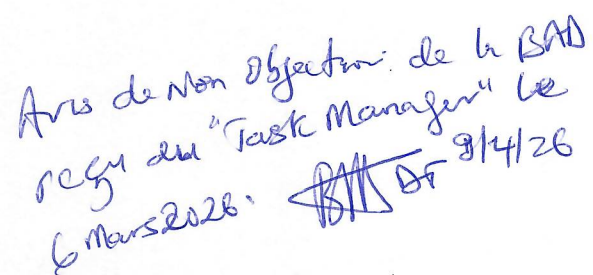 Avis de Non Objection de la BAD
reçu du "Task Manager" le
6 Mars 2026. DF 9/4/26